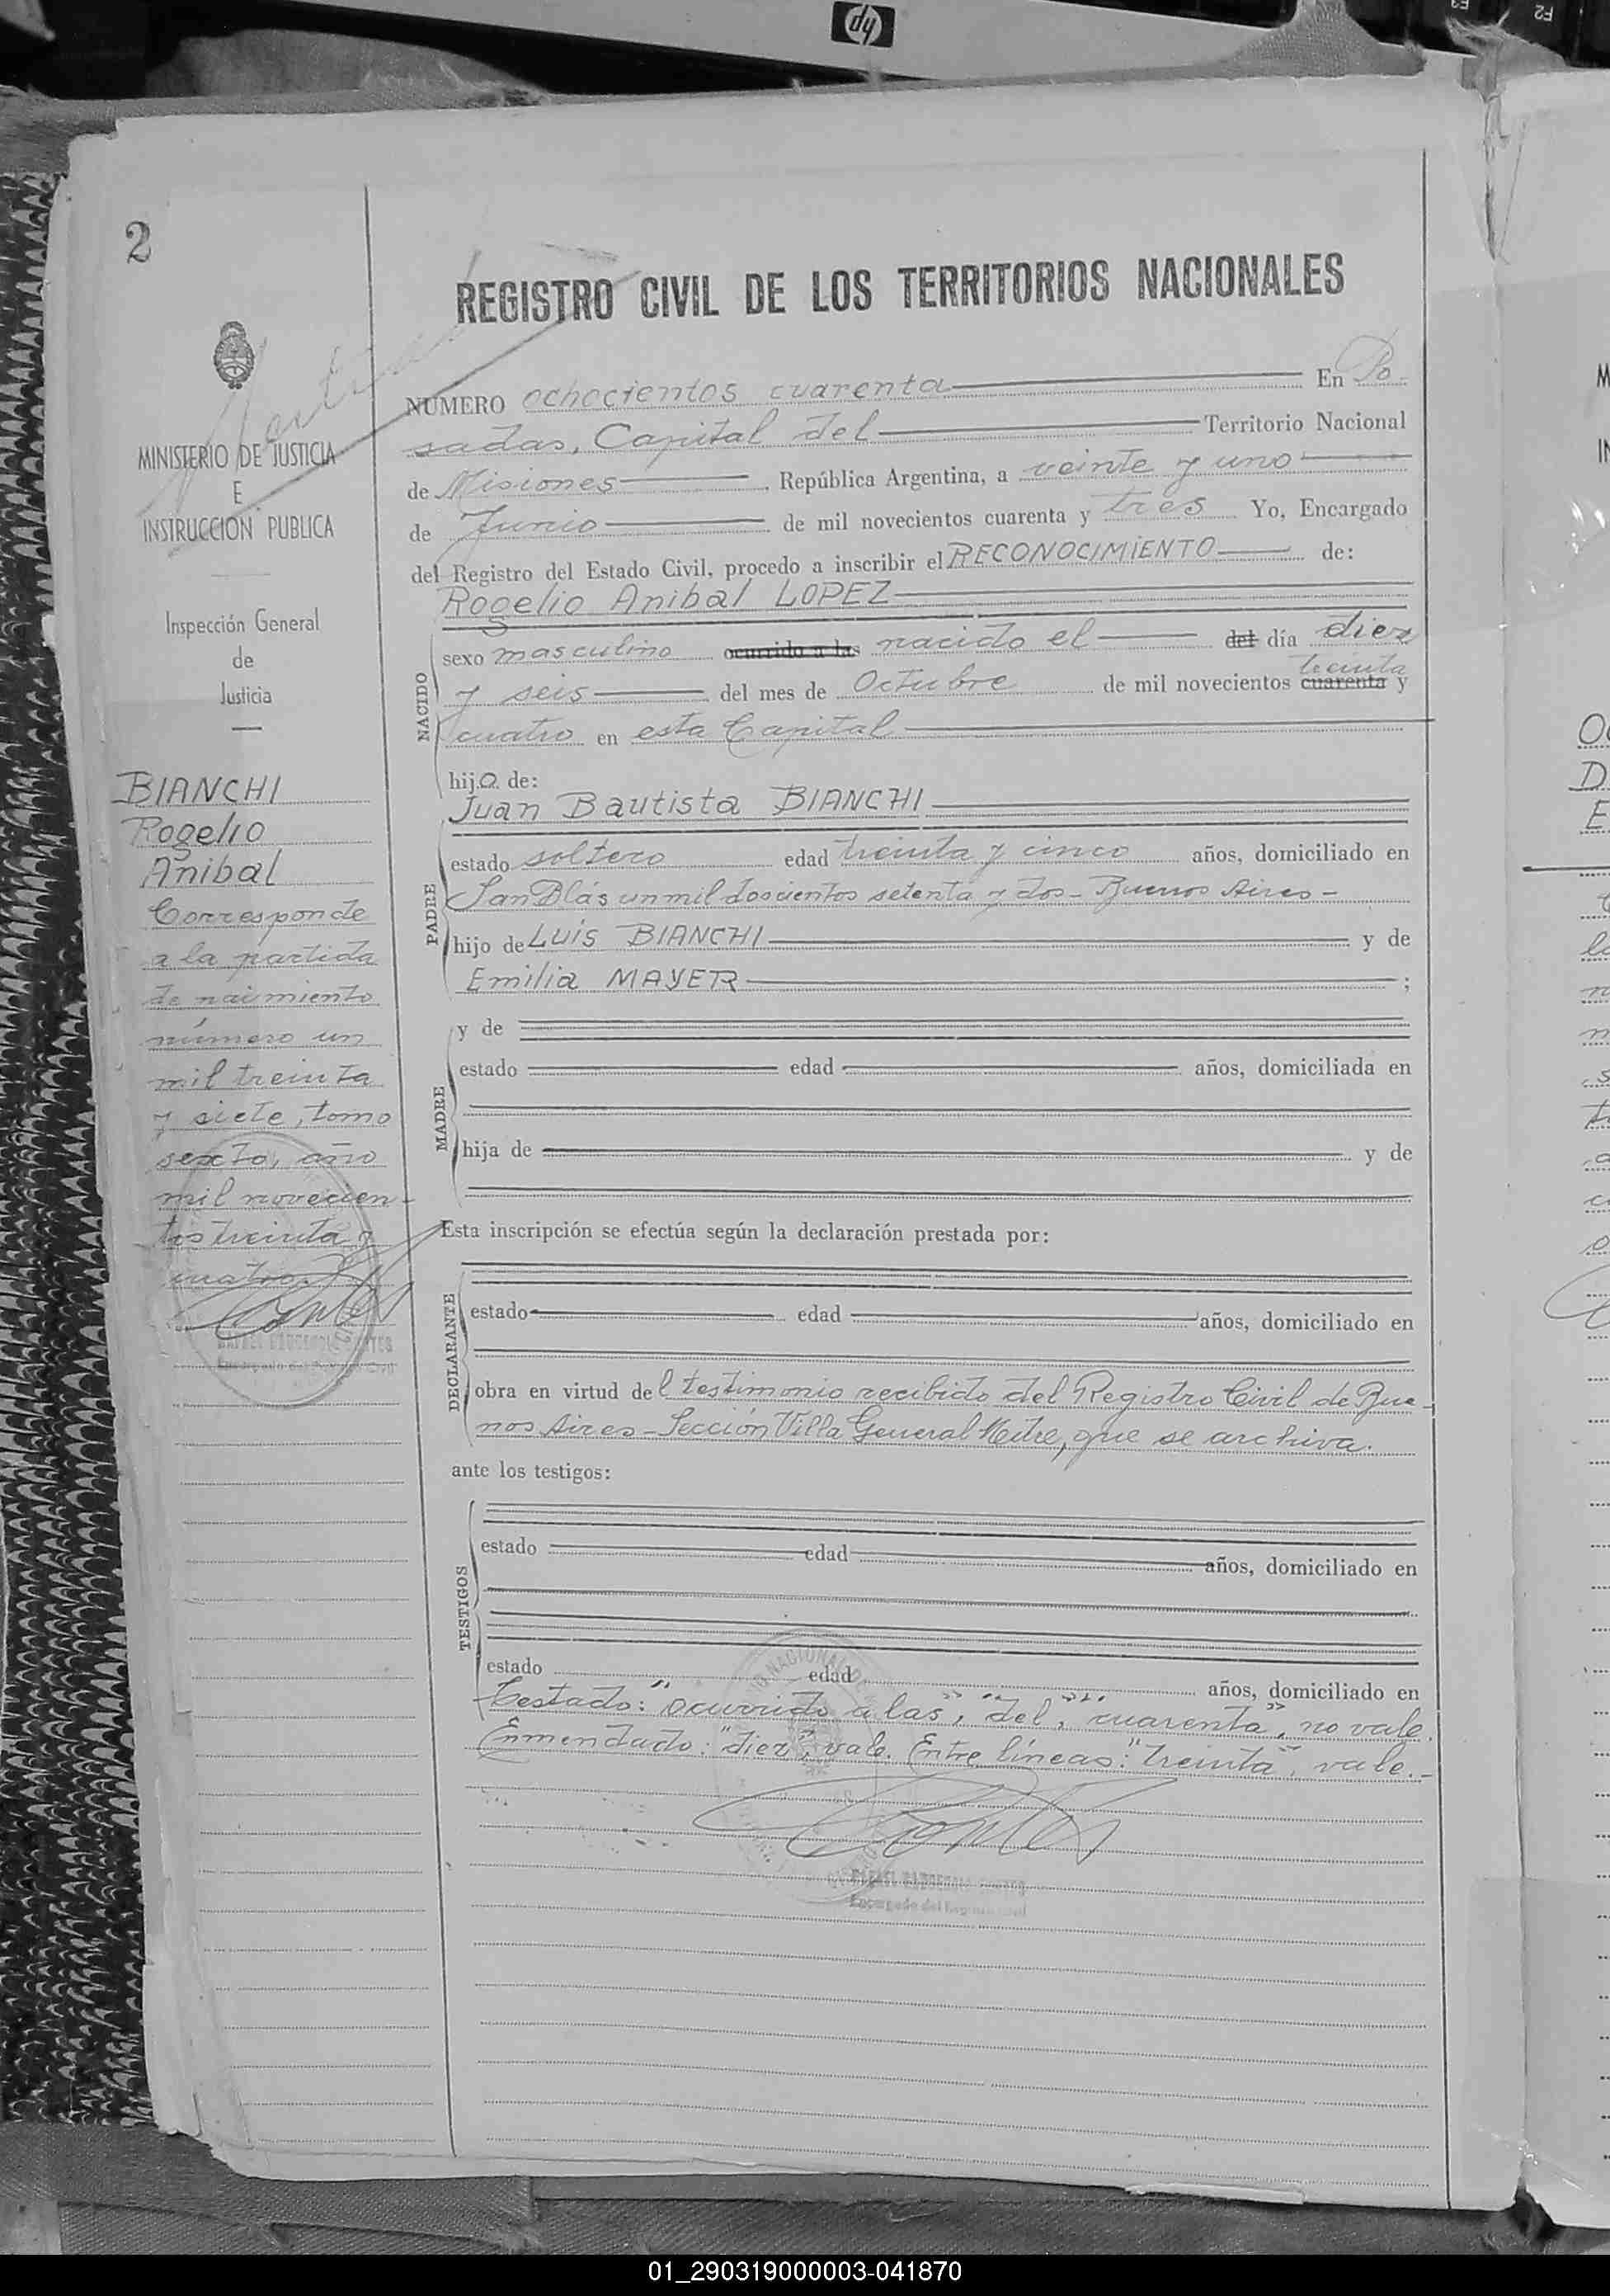 hp
F3
F2
2
REGISTRO CIVIL DE LOS TERRITORIOS NACIONALES
MINISTERIO DE JUSTICIA
E
INSTRUCCION PUBLICA
Inspección General
de
Justicia
BIANCHI
Rogelio
Anibal
Corresponde
a la partida
de naimiento
número un
mil treinta
y siete, tomo
sexto, año
mil novecien-
tos treinta y
cuatro.
NUMERO ochocientos cuarenta En Po-
sadas, Capital del Territorio Nacional
de Misiones República Argentina, a veinte y uno
de Junio de mil novecientos cuarenta y tres Yo, Encargado
del Registro del Estado Civil, procedo a inscribir el RECONOCIMIENTO de:
Rogelio Anibal LOPEZ
NACIDO
sexo masculino ocurrido a las nacido el del día diez
treinta
y seis del mes de Octubre de mil novecientos cuarenta y
cuatro en esta Capital
hijo de:
Juan Bautista BIANCHI
PADRE
estado soltero edad treinta y cinco años, domiciliado en
San Blás un mil doscientos setenta y dos - Buenos Aires -
hijo de Luis BIANCHI y de
Emilia MAYER ;
MADRE
y de
estado edad años, domiciliada en
hija de y de
Esta inscripción se efectúa según la declaración prestada por:
DECLARANTE
estado edad años, domiciliado en
obra en virtud del testimonio recibido del Registro Civil de Bue-
nos Aires - Sección Villa General Mitre, que se archiva.
ante los testigos:
TESTIGOS
estado edad años, domiciliado en
estado edad años, domiciliado en
Testado: "ocurrido a las", "del", "cuarenta", no vale.
Enmendado: "diez", vale. Entre líneas: "treinta", vale.-
Encargado del Registro Civil
01_290319000003-041870